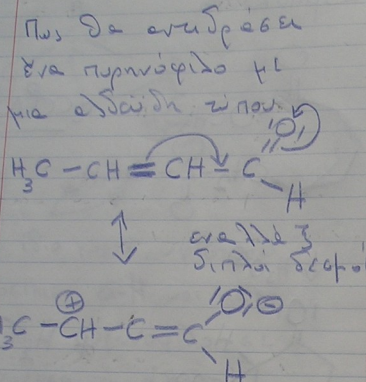 Πως θα αντιδράσει
ένα πυρηνόφιλο με
μια αλδεΰδη τύπου
H₃C – CH = CH – C
O
H
εναλλαξ
διπλοί δεσμοί
H₃C – CH – C = C
⊕
O ⊖
H